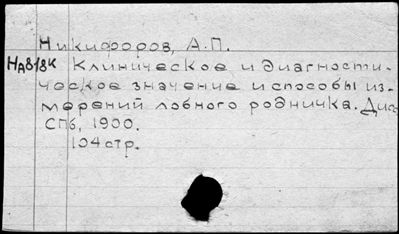 Никифоров, А.П.
Клиническое и диагности-
ческое значение и способы из-
мерений лобного родничка. Дисс
СПб, 1900.
104стр.